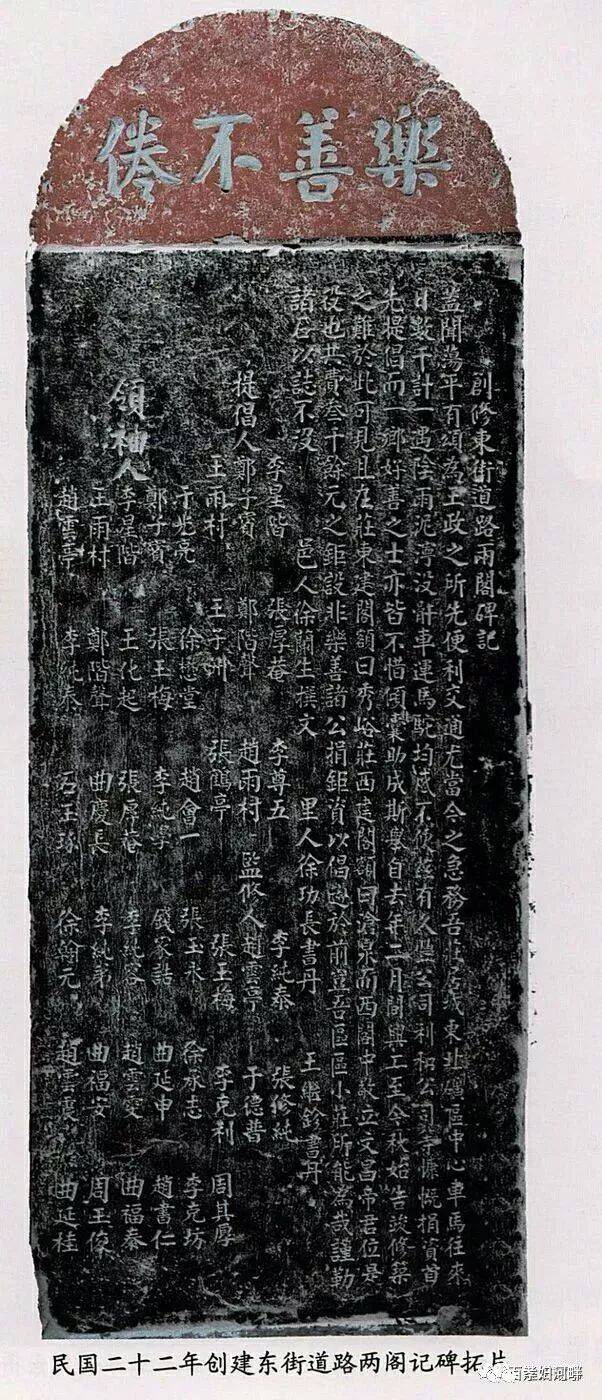 樂善不倦
創修東街道路兩閣碑記
蓋聞蕩平有頌為王政之所先便利交通尤當今之急務吾莊居城東北礦區中心車馬往來
日數千計一遇陰雨泥濘沒骭車運馬馱均感不便茲有人豐公司利和公司等慷慨捐資首
先提倡而一鄉好善之士亦皆不惜傾囊助成斯舉自去年二月間興工至今秋始告竣修築
之難於此可見且在莊東建閣額曰秀峪莊西建閣額曰滄泉而西閣中敬立文昌帝君位是
役也共費叁千餘元之鉅設非樂善諸公捐鉅資以倡於前豈吾區區小莊所能為哉謹勒
諸石以誌不沒 邑人徐蘭生撰文 里人徐功長書丹 王繼鈴書丹
李星階 張厚菴 李尊五 李純泰 張修純
提倡人 鄭子賓 鄭階聲 趙雨村 監修人 趙雲亭 于德普
王雨村 王子洲 張鶴亭 張玉梅 李克利 周其厚
于光亮 徐懋堂 趙會一 張玉永 徐承志 李克坊
鄭子賓 張玉梅 李純學 錢家誥 曲延申 趙書仁
領袖人 李星階 王化起 張厚菴 李純容 趙雲雯 曲福泰
王雨村 鄭階聲 曲慶長 李純弟 曲福安 周玉俊
趙雲亭 李純泰 石玉琢 徐翰元 趙雲震 曲延桂
民国二十二年创建东街道路两阁记碑拓片